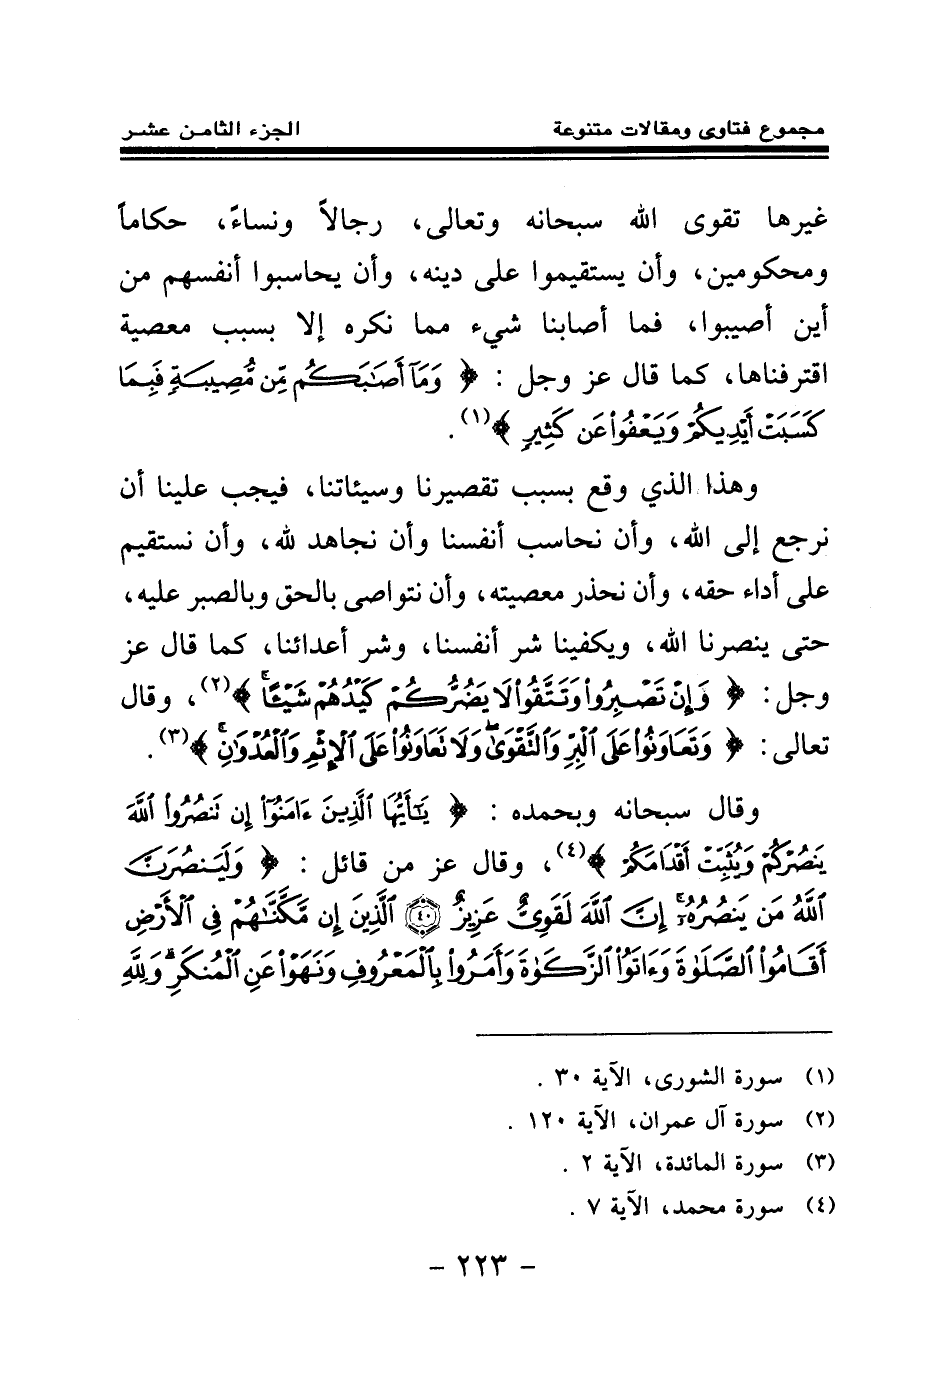 مجموع فتاوى ومقالات متنوعة الجزء الثامن عشر
غيرها تقوى الله سبحانه وتعالى، رجالاً ونساءً، حكاماً
ومحكومين، وأن يستقيموا على دينه، وأن يحاسبوا أنفسهم من
أين أصيبوا، فما أصابنا شيء مما نكره إلا بسبب معصية
اقترفناها، كما قال عز وجل : ﴿ وَمَآ أَصَٰبَكُم مِّن مُّصِيبَةٍ فَبِمَا
كَسَبَتْ أَيْدِيكُمْ وَيَعْفُوا۟ عَن كَثِيرٍ ﴾(١) .
وهذا الذي وقع بسبب تقصيرنا وسيئاتنا، فيجب علينا أن
نرجع إلى الله، وأن نحاسب أنفسنا وأن نجاهد لله، وأن نستقيم
على أداء حقه، وأن نحذر معصيته، وأن نتواصى بالحق وبالصبر عليه،
حتى ينصرنا الله، ويكفينا شر أنفسنا، وشر أعدائنا، كما قال عز
وجل : ﴿ وَإِن تَصْبِرُوا۟ وَتَتَّقُوا۟ لَا يَضُرُّكُمْ كَيْدُهُمْ شَيْـًٔا ۗ ﴾(٢)، وقال
تعالى : ﴿ وَتَعَاوَنُوا۟ عَلَى ٱلْبِرِّ وَٱلتَّقْوَىٰ ۖ وَلَا تَعَاوَنُوا۟ عَلَى ٱلْإِثْمِ وَٱلْعُدْوَٰنِ ۚ ﴾(٣) .
وقال سبحانه وبحمده : ﴿ يَٰٓأَيُّهَا ٱلَّذِينَ ءَامَنُوٓا۟ إِن تَنصُرُوا۟ ٱللَّهَ
يَنصُرْكُمْ وَيُثَبِّتْ أَقْدَامَكُمْ ﴾(٤)، وقال عز من قائل : ﴿ وَلَيَنصُرَنَّ
ٱللَّهُ مَن يَنصُرُهُۥٓ ۗ إِنَّ ٱللَّهَ لَقَوِىٌّ عَزِيزٌ ۝٤٠ ٱلَّذِينَ إِن مَّكَّنَّٰهُمْ فِى ٱلْأَرْضِ
أَقَامُوا۟ ٱلصَّلَوٰةَ وَءَاتَوُا۟ ٱلزَّكَوٰةَ وَأَمَرُوا۟ بِٱلْمَعْرُوفِ وَنَهَوْا۟ عَنِ ٱلْمُنكَرِ ۗ وَلِلَّهِ
(١) سورة الشورى، الآية ٣٠ .
(٢) سورة آل عمران، الآية ١٢٠ .
(٣) سورة المائدة، الآية ٢ .
(٤) سورة محمد، الآية ٧ .
- ٢٢٣ -